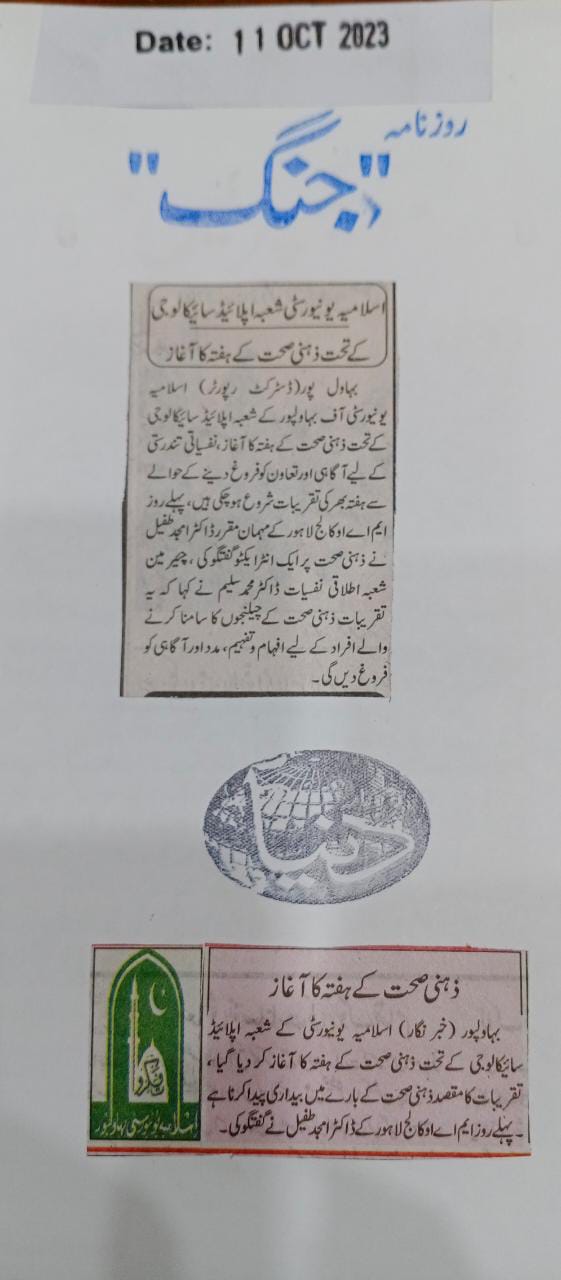 Date: 11 OCT 2023
روزنامہ
"جنگ"
اسلامیہ یونیورسٹی شعبہ اپلائیڈ سائیکالوجی
کے تحت ذہنی صحت کے ہفتہ کا آغاز
بہاول پور (ڈسٹرکٹ رپورٹر) اسلامیہ
یونیورسٹی آف بہاولپور کے شعبہ اپلائیڈ سائیکالوجی
کے تحت ذہنی صحت کے ہفتہ کا آغاز، نفسیاتی تندرستی
کے لیے آگاہی اور تعاون کو فروغ دینے کے حوالے
سے ہفتہ بھر کی تقریبات شروع ہو چکی ہیں، پہلے روز
ایم اے او کالج لاہور کے مہمان مقرر ڈاکٹر امجد طفیل
نے ذہنی صحت پر ایک انٹرایکٹو گفتگو کی، چیئرمین
شعبہ اطلاقی نفسیات ڈاکٹر محمد سلیم نے کہا کہ یہ
تقریبات ذہنی صحت کے چیلنجوں کا سامنا کرنے
والے افراد کے لیے افہام و تفہیم، مدد اور آگاہی کو
فروغ دیں گی۔
دنیا
ذہنی صحت کے ہفتہ کا آغاز
بہاولپور (خبر نگار) اسلامیہ یونیورسٹی کے شعبہ اپلائیڈ
سائیکالوجی کے تحت ذہنی صحت کے ہفتہ کا آغاز کر دیا گیا،
تقریبات کا مقصد ذہنی صحت کے بارے میں بیداری پیدا کرنا ہے
۔ پہلے روز ایم اے او کالج لاہور کے ڈاکٹر امجد طفیل نے گفتگو کی۔
اسلامیہ یونیورسٹی بہاولپور